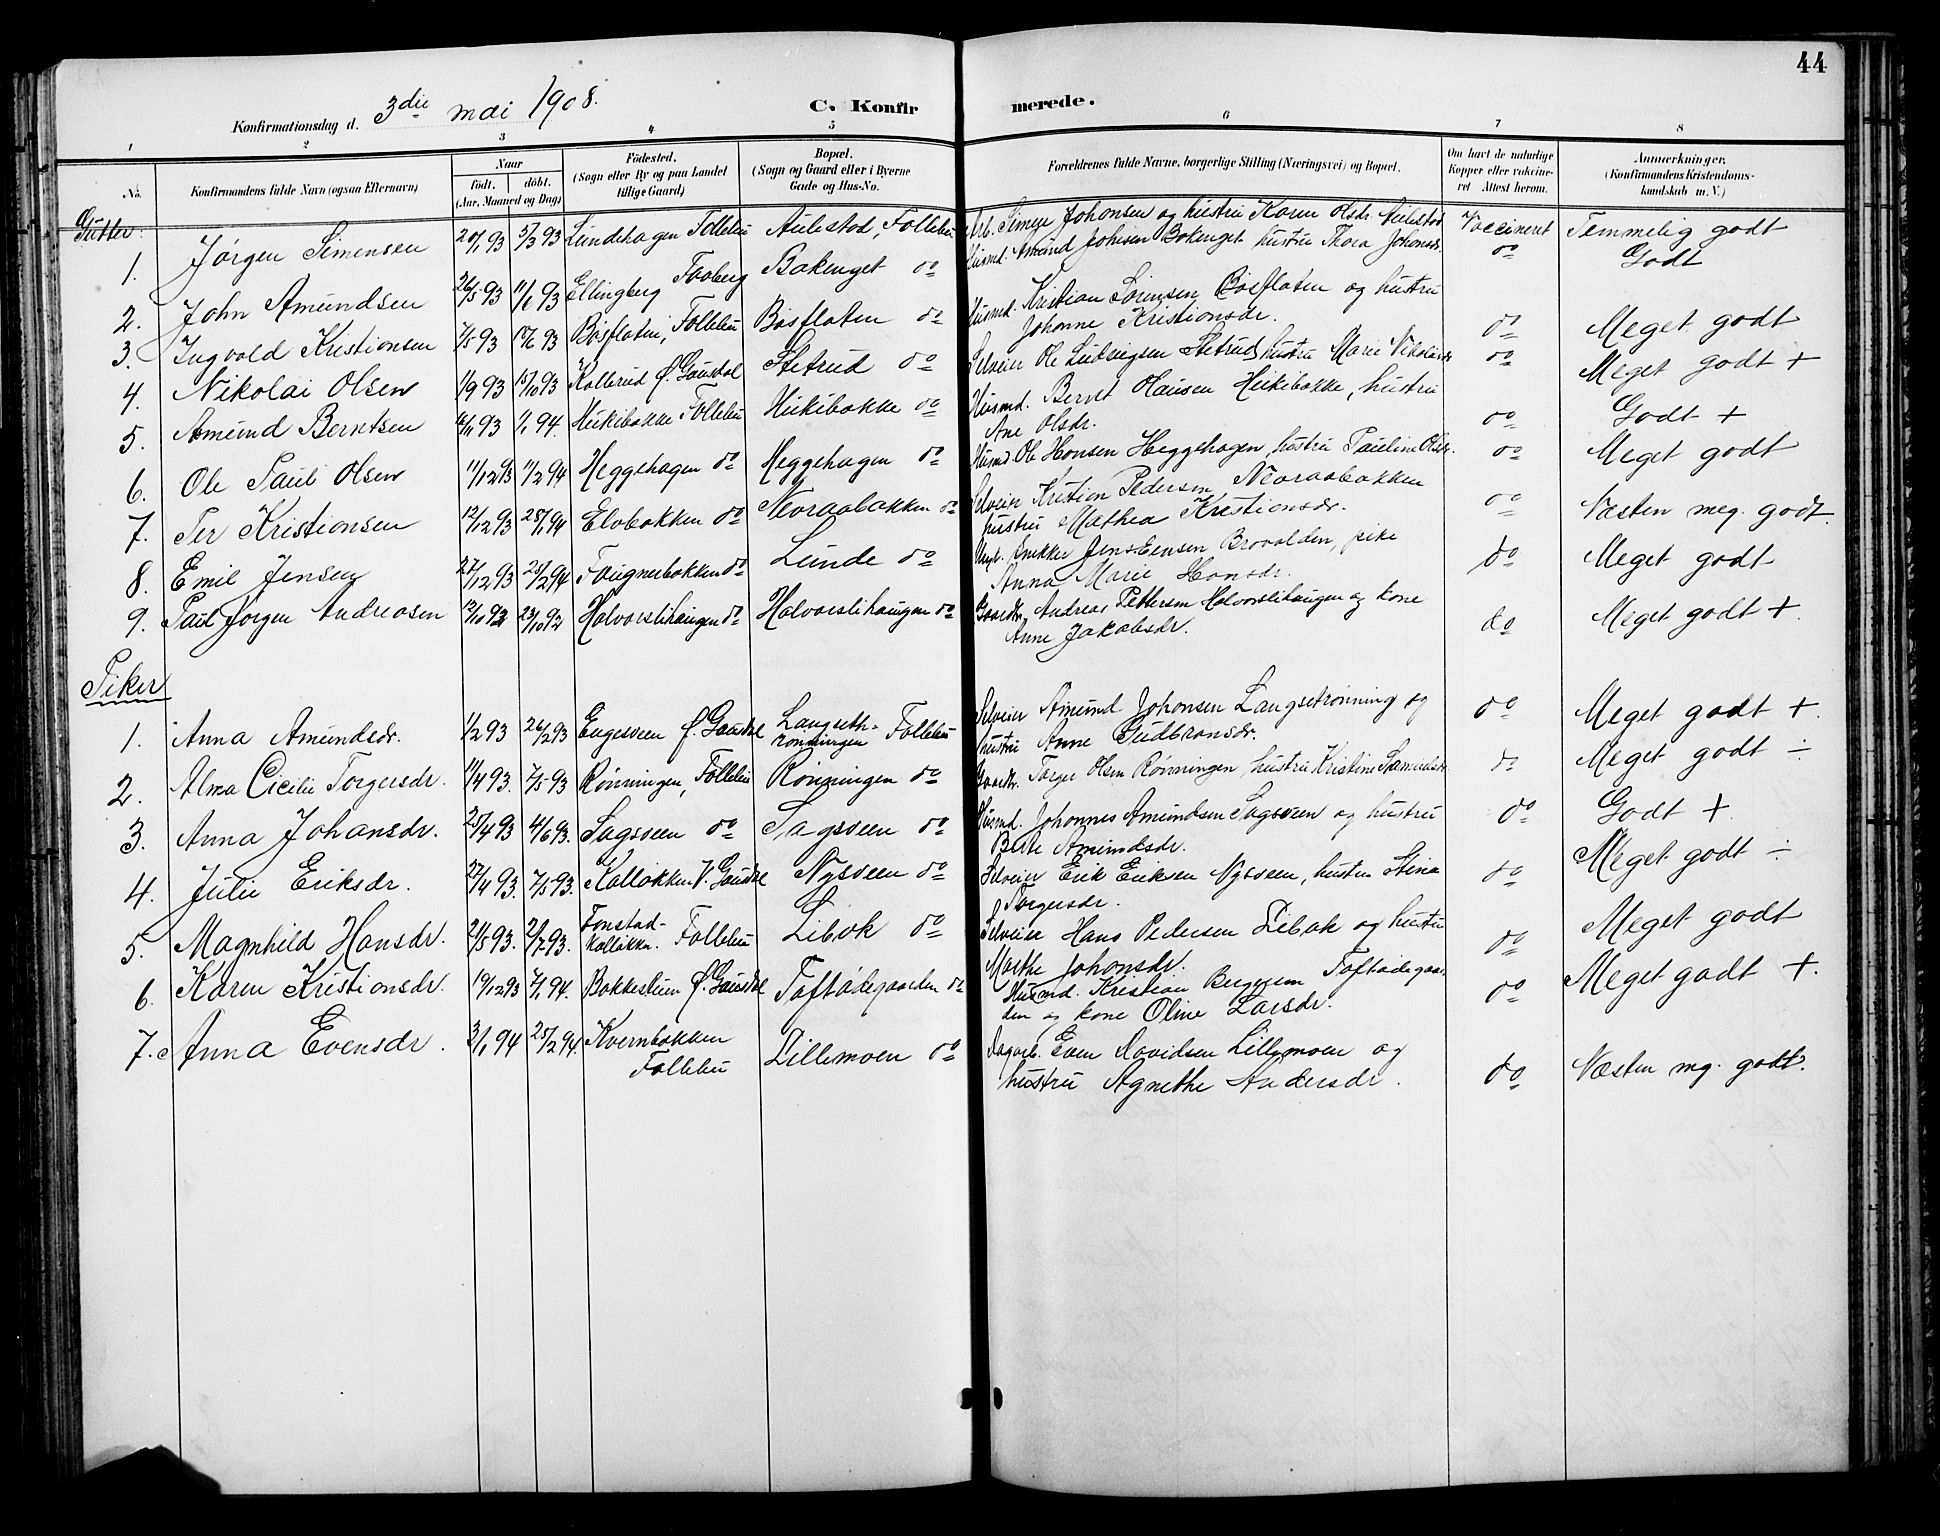 44
Konfirmationsdag d. 3die mai 1908.
C. Konfirmerede.
1 2 3 4 5 6 7 8
No. Konfirmandens fulde Navn (ogsaa Efternavn) Naar födt. döbt. (Aar, Maaned og Dag) Födested. (Sogn eller By og paa Landet tillige Gaard) Bopæl. (Sogn og Gaard eller i Byerne Gade og Hus-No. Forældrenes fulde Navne, borgerlige Stilling (Næringsvei) og Bopæl. Om havt de naturlige Kopper eller vaccineret Attest herom. Anmærkninger. (Konfirmandens Kristendomskundskab m. V.)
Gutter.
1. Jørgen Simensen 20/1 93 5/3 93 Lundehagen Follebu Aulestad, Follebu Arb. Simen Johansen og hustru Karen Olsdr. Aulestad Vaccineret Temmelig godt
2. John Amundsen 26/5 93 11/6 93 Ellingberg Faaberg Bakenget do Husmd. Amund Johnsen Bakenget, hustru Thora Johansdr. do Godt
3. Ingvald Kristiansen 7/5 93 17/6 93 Bøsfloten, Follebu Bøsfloten do Husmd. Kristian Sørensen Bøsfloten og hustru
Johanne Kristiansdr. do Meget godt
4. Nikolai Olsen 1/9 93 15/10 93 Kollerud Ø. Gausdal Stetrud do Selveier Ole Ludvigsen Stetrud, hustru Marie Nikolaisdr do Meget godt +
5. Amund Berntsen 16/11 93 1/1 94. Heikibakke Follebu Heikibakke do Husmd. Bernt Hansen Heikibakke, hustru
Ane Olsdr. do Godt +
6. Ole Paul Olsen 11/12 93 11/2 94 Heggehagen do Heggehagen do Husmd. Ole Hansen Heggehagen, hustru Pauline Olsdr. do Meget godt
7. Per Kristiansen 12/12 93 28/1 94 Elvebakken do Neoraabakken do Selveier Kristian Pedersen Neoraabakken
hustru Mathea Kristiansdr. do Næsten meg. godt.
8. Emil Jensen 27/12 93 25/2 94 Faugnerbakken do Lunde do Ungk. Snekker Jens Eensen Brovolden, pike
Anna Marie Hansdr. do Meget godt
9. Paul Jørgen Andreasen 12/10 92 23/10 92 Halvorslihaugen do Halvorslihaugen do Gaardbr. Andreas Pettersen Halvorslihaugen og kone
Anne Jakobsdr. do Meget godt +.
Piker
1. Anna Amundsdr. 1/2 93 26/2 93 Engesveen Ø. Gausdal Langseth-rønningen Follebu Selveier Amund Johansen Langsetrønning og
hustru Anne Gudbransdr. do Meget godt +.
2. Alma Cicilie Torgersdr. 11/4 93. 7/5 93 Rønningen, Follebu Rønningen do Gaardbr. Torger Olsen Rønningen, hustru Kristine Samuelsdr. do Meget godt ÷
3. Anna Johansdr. 25/4 93 4/6 93. Sagsveen do Sagsveen do Husmd. Johannes Amundsen Sagsveen og hustru
Beate Amundsdr. do Godt +.
4. Julie Eriksdr. 27/4 93. 7/5 93. Kalløkken V. Gausdal Nysveen do Selveier Erik Eriksen Nysveen, hustru Stina
Torgersdr. do Meget godt ÷
5. Magnhild Hansdr. 21/5 93. 2/7 93. Fonstad-kalløkken. Follebu Libak do Selveier Hans Pedersen Libak og hustru
Marthe Johansdr. do Meget godt
6. Karen Kristiansdr. 19/12 93 7/1 94. Bakkestuen Ø. Gausdal Toftødegaarden do Husmd. Kristian Bergersen Toftødegaar
den og kone Oline Larsdr. do Meget godt +.
7. Anna Evensdr. 3/1 94 25/2 94. Kvernbakken
Follebu Lillemoen do Dagarb. Even Davidsen Lillemoen og
hustru Agnethe Andersdr. do Næsten mg. godt.